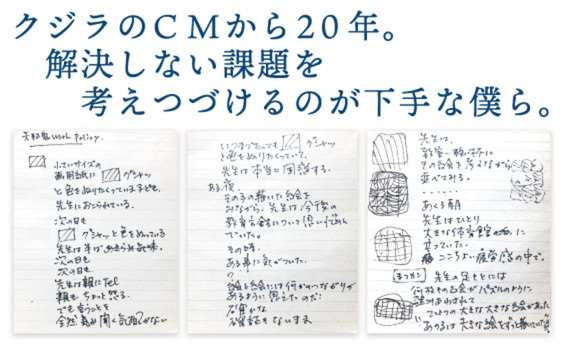 クジラのCMから20年。
解決しない課題を
考えつづけるのが下手な僕ら。
小さいサイズの
画用紙に グシャッ
と色をぬりたくっている子ども。
先生におこられている。
次の日も
グシャッと色をぬっている
先生は半ばあきらめ気味。
次の日も
次の日も
先生は親にTel
親も ちょっと怒る。
でも言うことを
全然 聞く気配がない
いつまでたっても グシャッ
と色をぬりたくっていて、
先生は本当に困惑する。
ある夜、
その子の描いた絵を
みながら、先生は、今後の
教育方針について思い悩ん
でいた。
その時、
ある事に気がついた。
絵と絵には何かのつながりが
あるように思えたのだ
先生は、
教室 体育館に
その絵を考えながら
並べてみる。
・・・・・・
あくる朝
先生はひとり
大きな体育館の
立っていた。
ここちよい疲労感の中で。
先生の足もとには
何枚もの絵がパズルのように
ひとつの大きな大きな絵があった
あの子は大きな絵をずっと描いていた